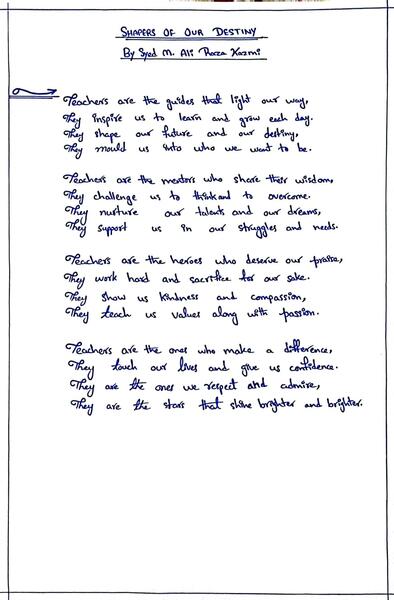 SHAPERS OF OUR DESTINY
By Syed M. Ali Raza Kazmi
Teachers are the guides that light our way,
They inspire us to learn and grow each day.
They shape our future and our destiny,
They mould us into who we want to be.
Teachers are the mentors who share their wisdom,
They challenge us to think and to overcome.
They nurture our talents and our dreams,
They support us in our struggles and needs.
Teachers are the heroes who deserve our praise,
They work hard and sacrifice for our sake.
They show us kindness and compassion,
They teach us values along with passion.
Teachers are the ones who make a difference,
They touch our lives and give us confidence.
They are the ones we respect and admire,
They are the stars that shine brighter and brighter.